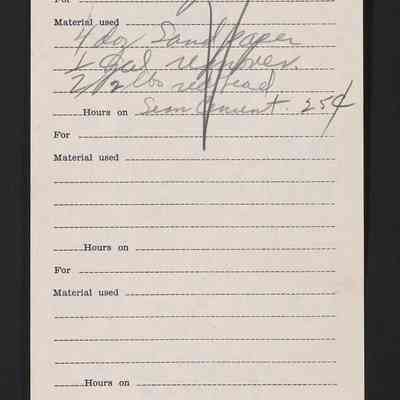 For
Material used
4 doz Sand paper
1 Gal remover.
2 1/2 lbs red lead
Hours on Seam Cement. 25¢
For
Material used
Hours on
For
Material used
Hours on